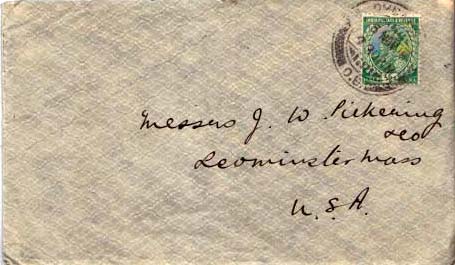 Messers J. W. Pickering
& Co
Leominster Mass
U.S.A.